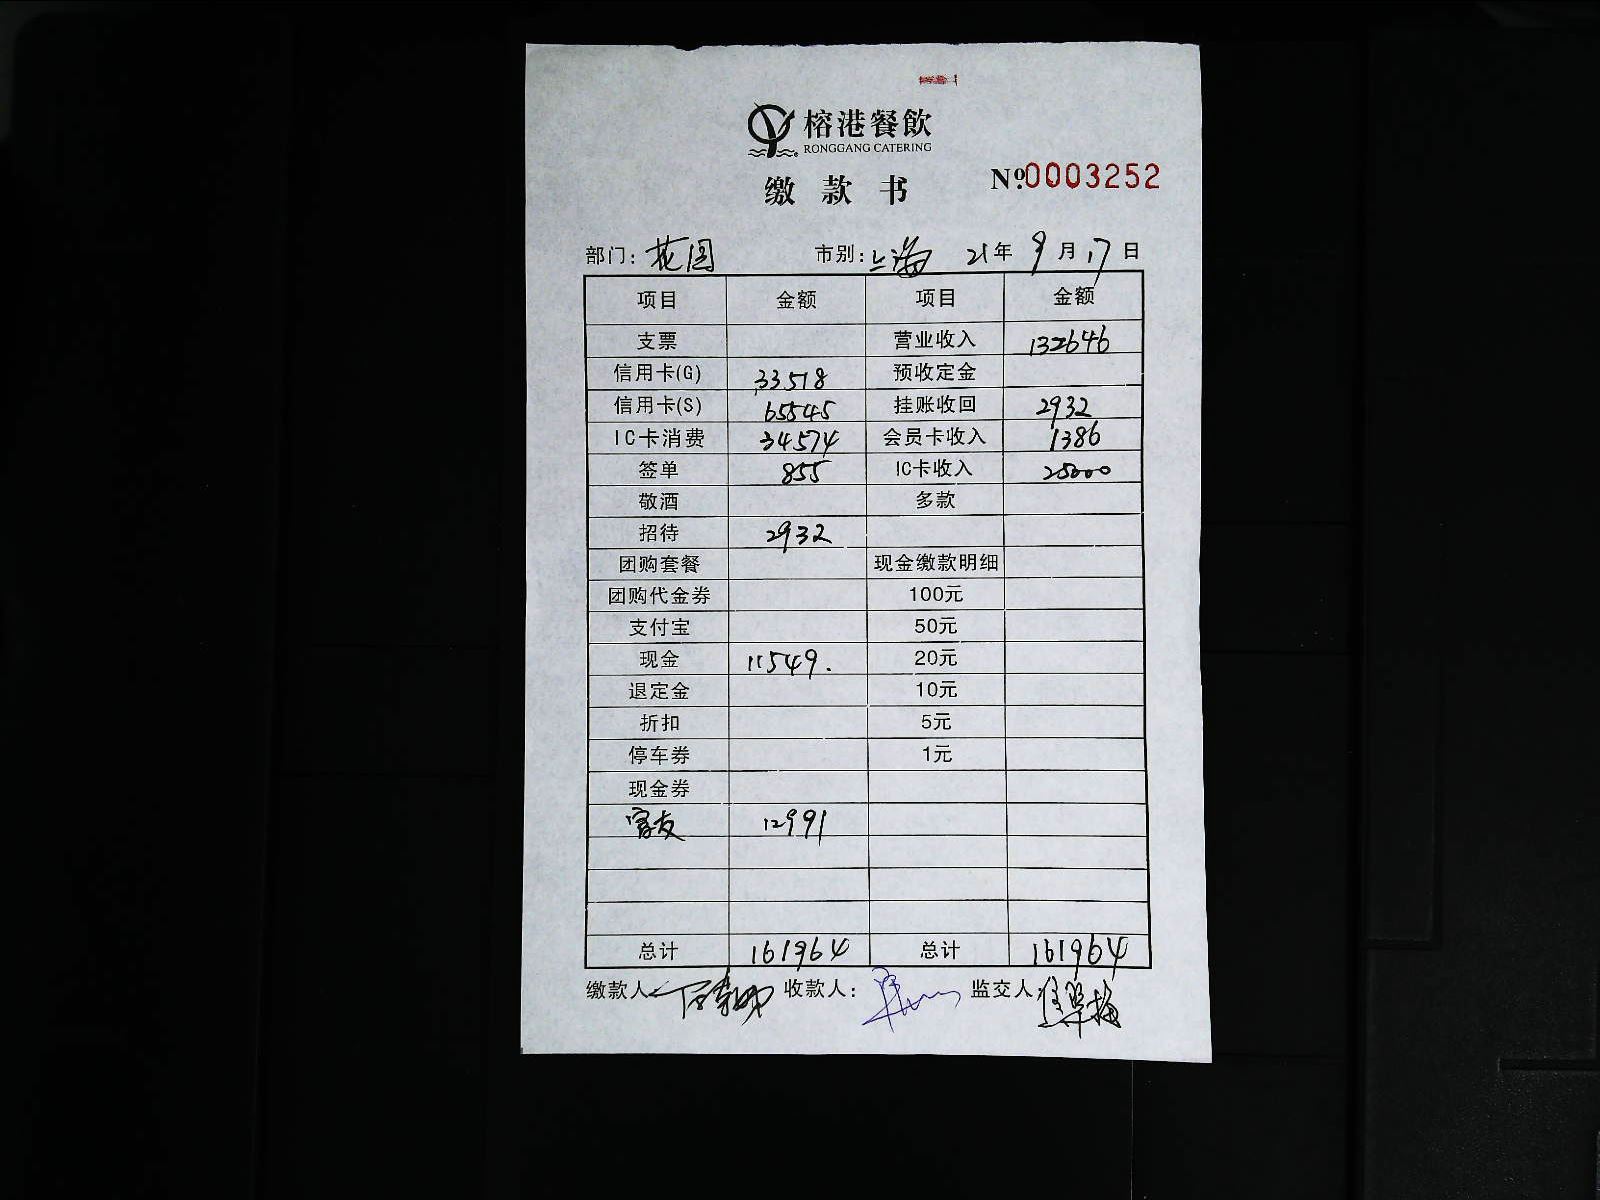 榕港餐飲
RONGGANG CATERING
缴款书
№0003252
部门: 花园 市别: 上海 21年9月17日
项目 金额 项目 金额
支票 营业收入 132646
信用卡(G) 33518 预收定金
信用卡(S) 65545 挂账收回 2932
IC卡消费 34574 会员卡收入 1386
签单 855 IC卡收入 25000
敬酒 多款
招待 2932
团购套餐 现金缴款明细
团购代金券 100元
支付宝 50元
现金 11549. 20元
退定金 10元
折扣 5元
停车券 1元
现金券
12991
总计 161964 总计 161964
缴款人: 收款人: 监交人: